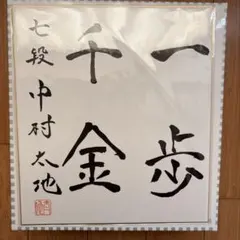 一歩
千金
七段 中村太地